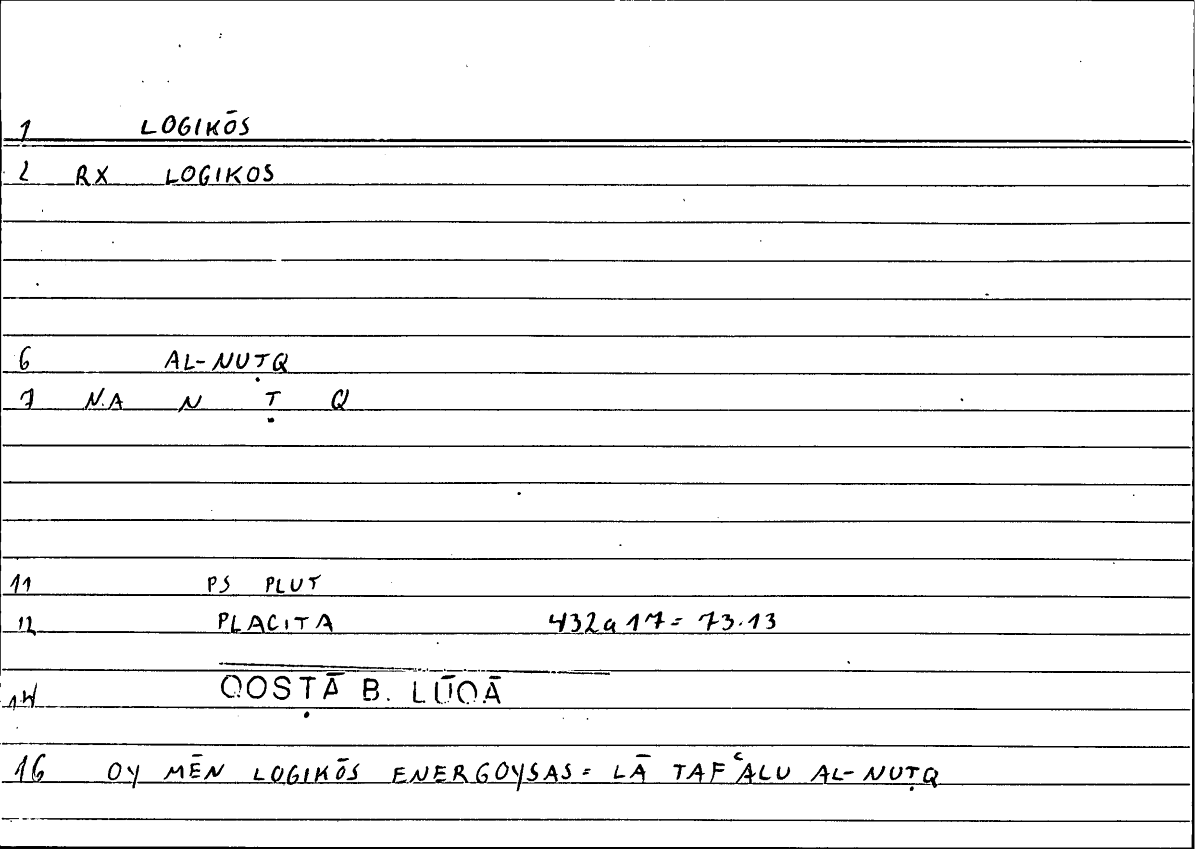 1 LOGIKŌS
2 RX LOGIKOS
6 AL-NUṬQ
7 N.A N Ṭ Q
11 PS PLUT
12 PLACITA 432a17 = 73.13
14 QOSṬĀ B. LŪQĀ
16 OY MĒN LOGIKŌS ENERGOYSAS = LĀ TAFʿALU AL-NUṬQ